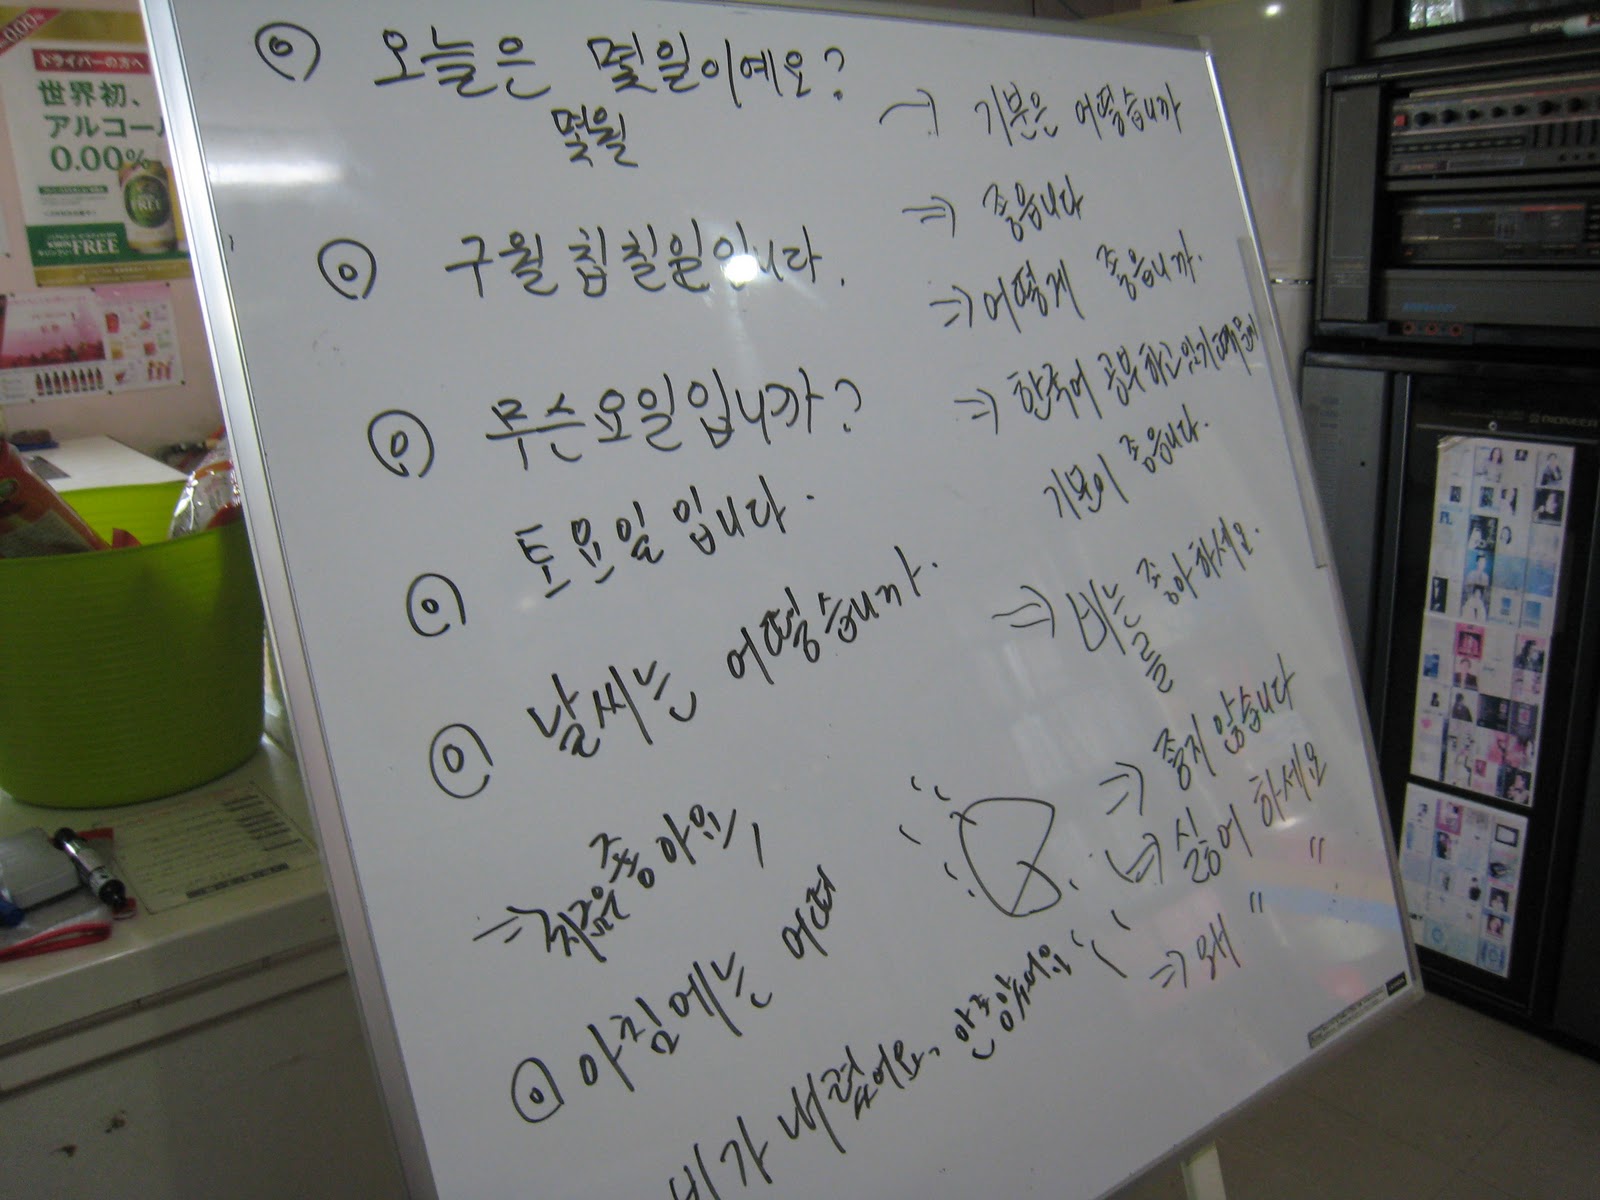 오늘은 몇일이예요?
몇월
구월 칠일입니다.
무슨요일입니까?
토요일입니다.
날씨는 어떻습니까.
좋아요,
아침에는
비가 내렸어요.
→ 기분은 어떻습니까
⇒ 좋습니다
⇒ 어떻게 좋습니까.
⇒ 한국어 공부하고있기때문에
기분이 좋습니다.
⇒ 비는 좋아하세요.
를
⇒ 좋지 않습니다
⇒ 싫어 하세요
⇒ 왜 〃 〃
ドライバーの方へ
世界初、
アルコール
0.00%
KIRIN
FREE
PIONEER